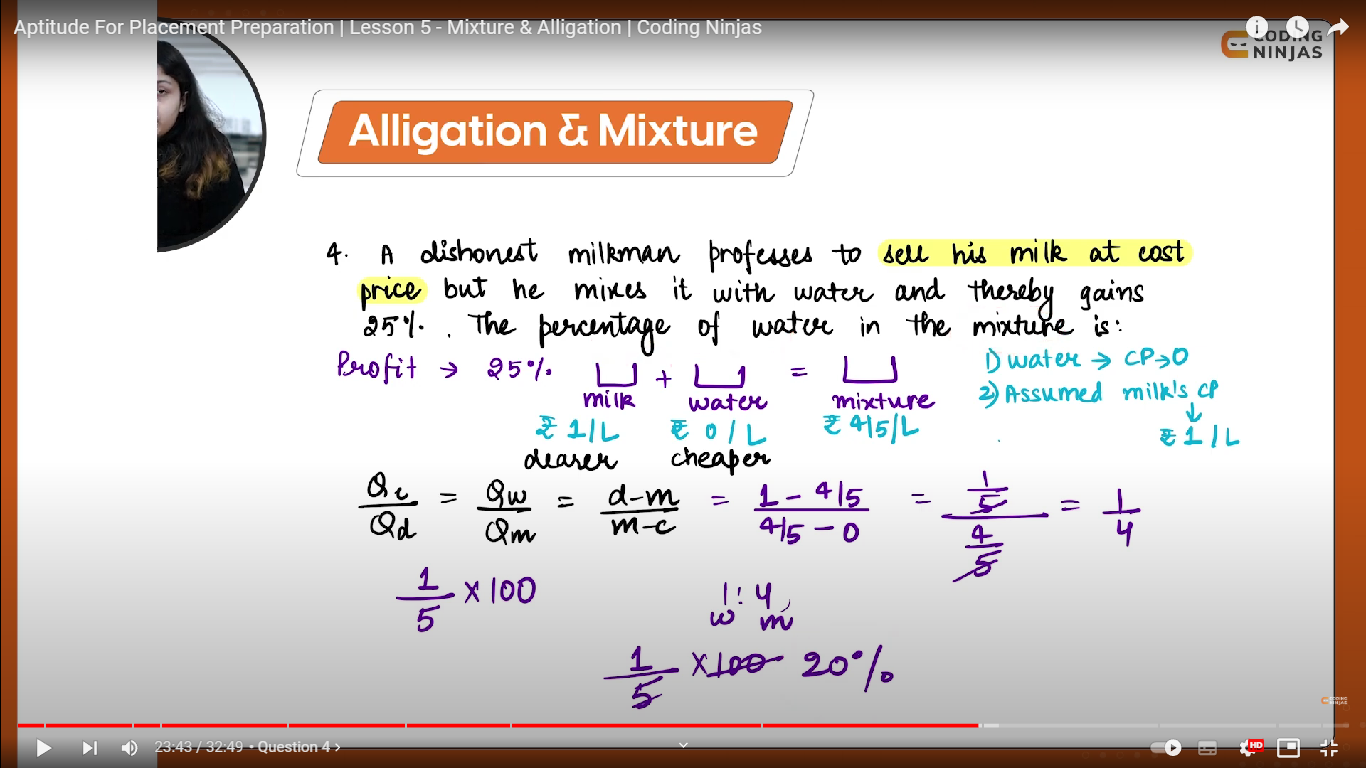 Aptitude For Placement Preparation | Lesson 5 - Mixture & Alligation | Coding Ninjas
CODING
NINJAS
Alligation & Mixture
4. A dishonest milkman professes to sell his milk at cost
price but he mixes it with water and thereby gains
25%. The percentage of water in the mixture is:
Profit → 25% milk + water = mixture
₹ 1/L ₹ 0/L ₹ 4/5/L
dearer cheaper
1) water → CP→0
2) Assumed milk's CP
↓
₹ 1/L
Qc/Qd = Qw/Qm = d-m/m-c = 1 - 4/5 / 4/5 - 0 = 1/5 / 4/5 = 1/4
1/5 × 100
1:4
w m
1/5 × 100 20%
CODING
NINJAS
23:43 / 32:49 • Question 4 ›
HD